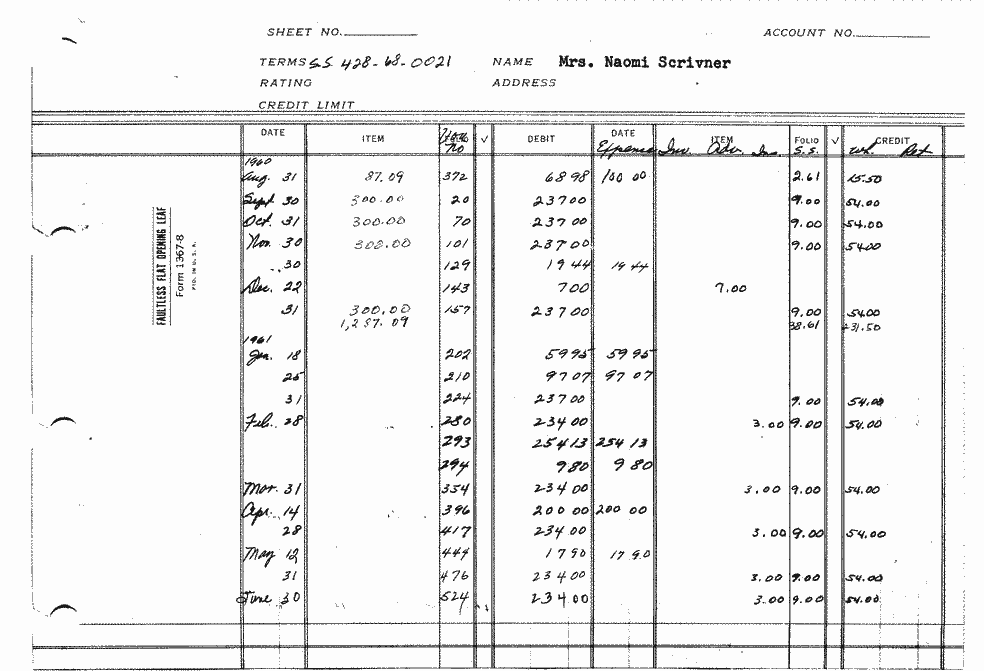 SHEET NO. ACCOUNT NO.
TERMS SS 428-68-0021 NAME Mrs. Naomi Scrivner
RATING ADDRESS
CREDIT LIMIT
DATE ITEM No ✓ DEBIT DATE ITEM FOLIO ✓ CREDIT
Expense Inv. Adv. Ins. S.S. Wh. Ret
1960
Aug. 31 87.09 372 68 98 100 00 2.61 15.50
Sept 30 300.00 20 237 00 9.00 54.00
Oct. 31 300.00 70 237 00 9.00 54.00
Nov. 30 300.00 101 237 00 9.00 54.00
30 129 19 44 19 44
Dec. 22 143 7 00 7.00
31 300.00 157 237 00 9.00 54.00
1,287.09 38.61 231.50
1961
Jan. 18 202 59 95 59 95
25 210 97 07 97 07
31 224 237 00 9.00 54.00
Feb. 28 280 234 00 3.00 9.00 54.00
293 254 13 254 13
294 9 80 9 80
Mar. 31 354 234 00 3.00 9.00 54.00
Apr. 14 396 200 00 200 00
28 417 234.00 3.00 9.00 54.00
May 12 444 17 90 17 90
31 476 234 00 3.00 9.00 54.00
June 30 524 234 00 3.00 9.00 54.00
FAULTLESS FLAT OPENING LEAF
Form 1367-8
PTD. IN U.S.A.